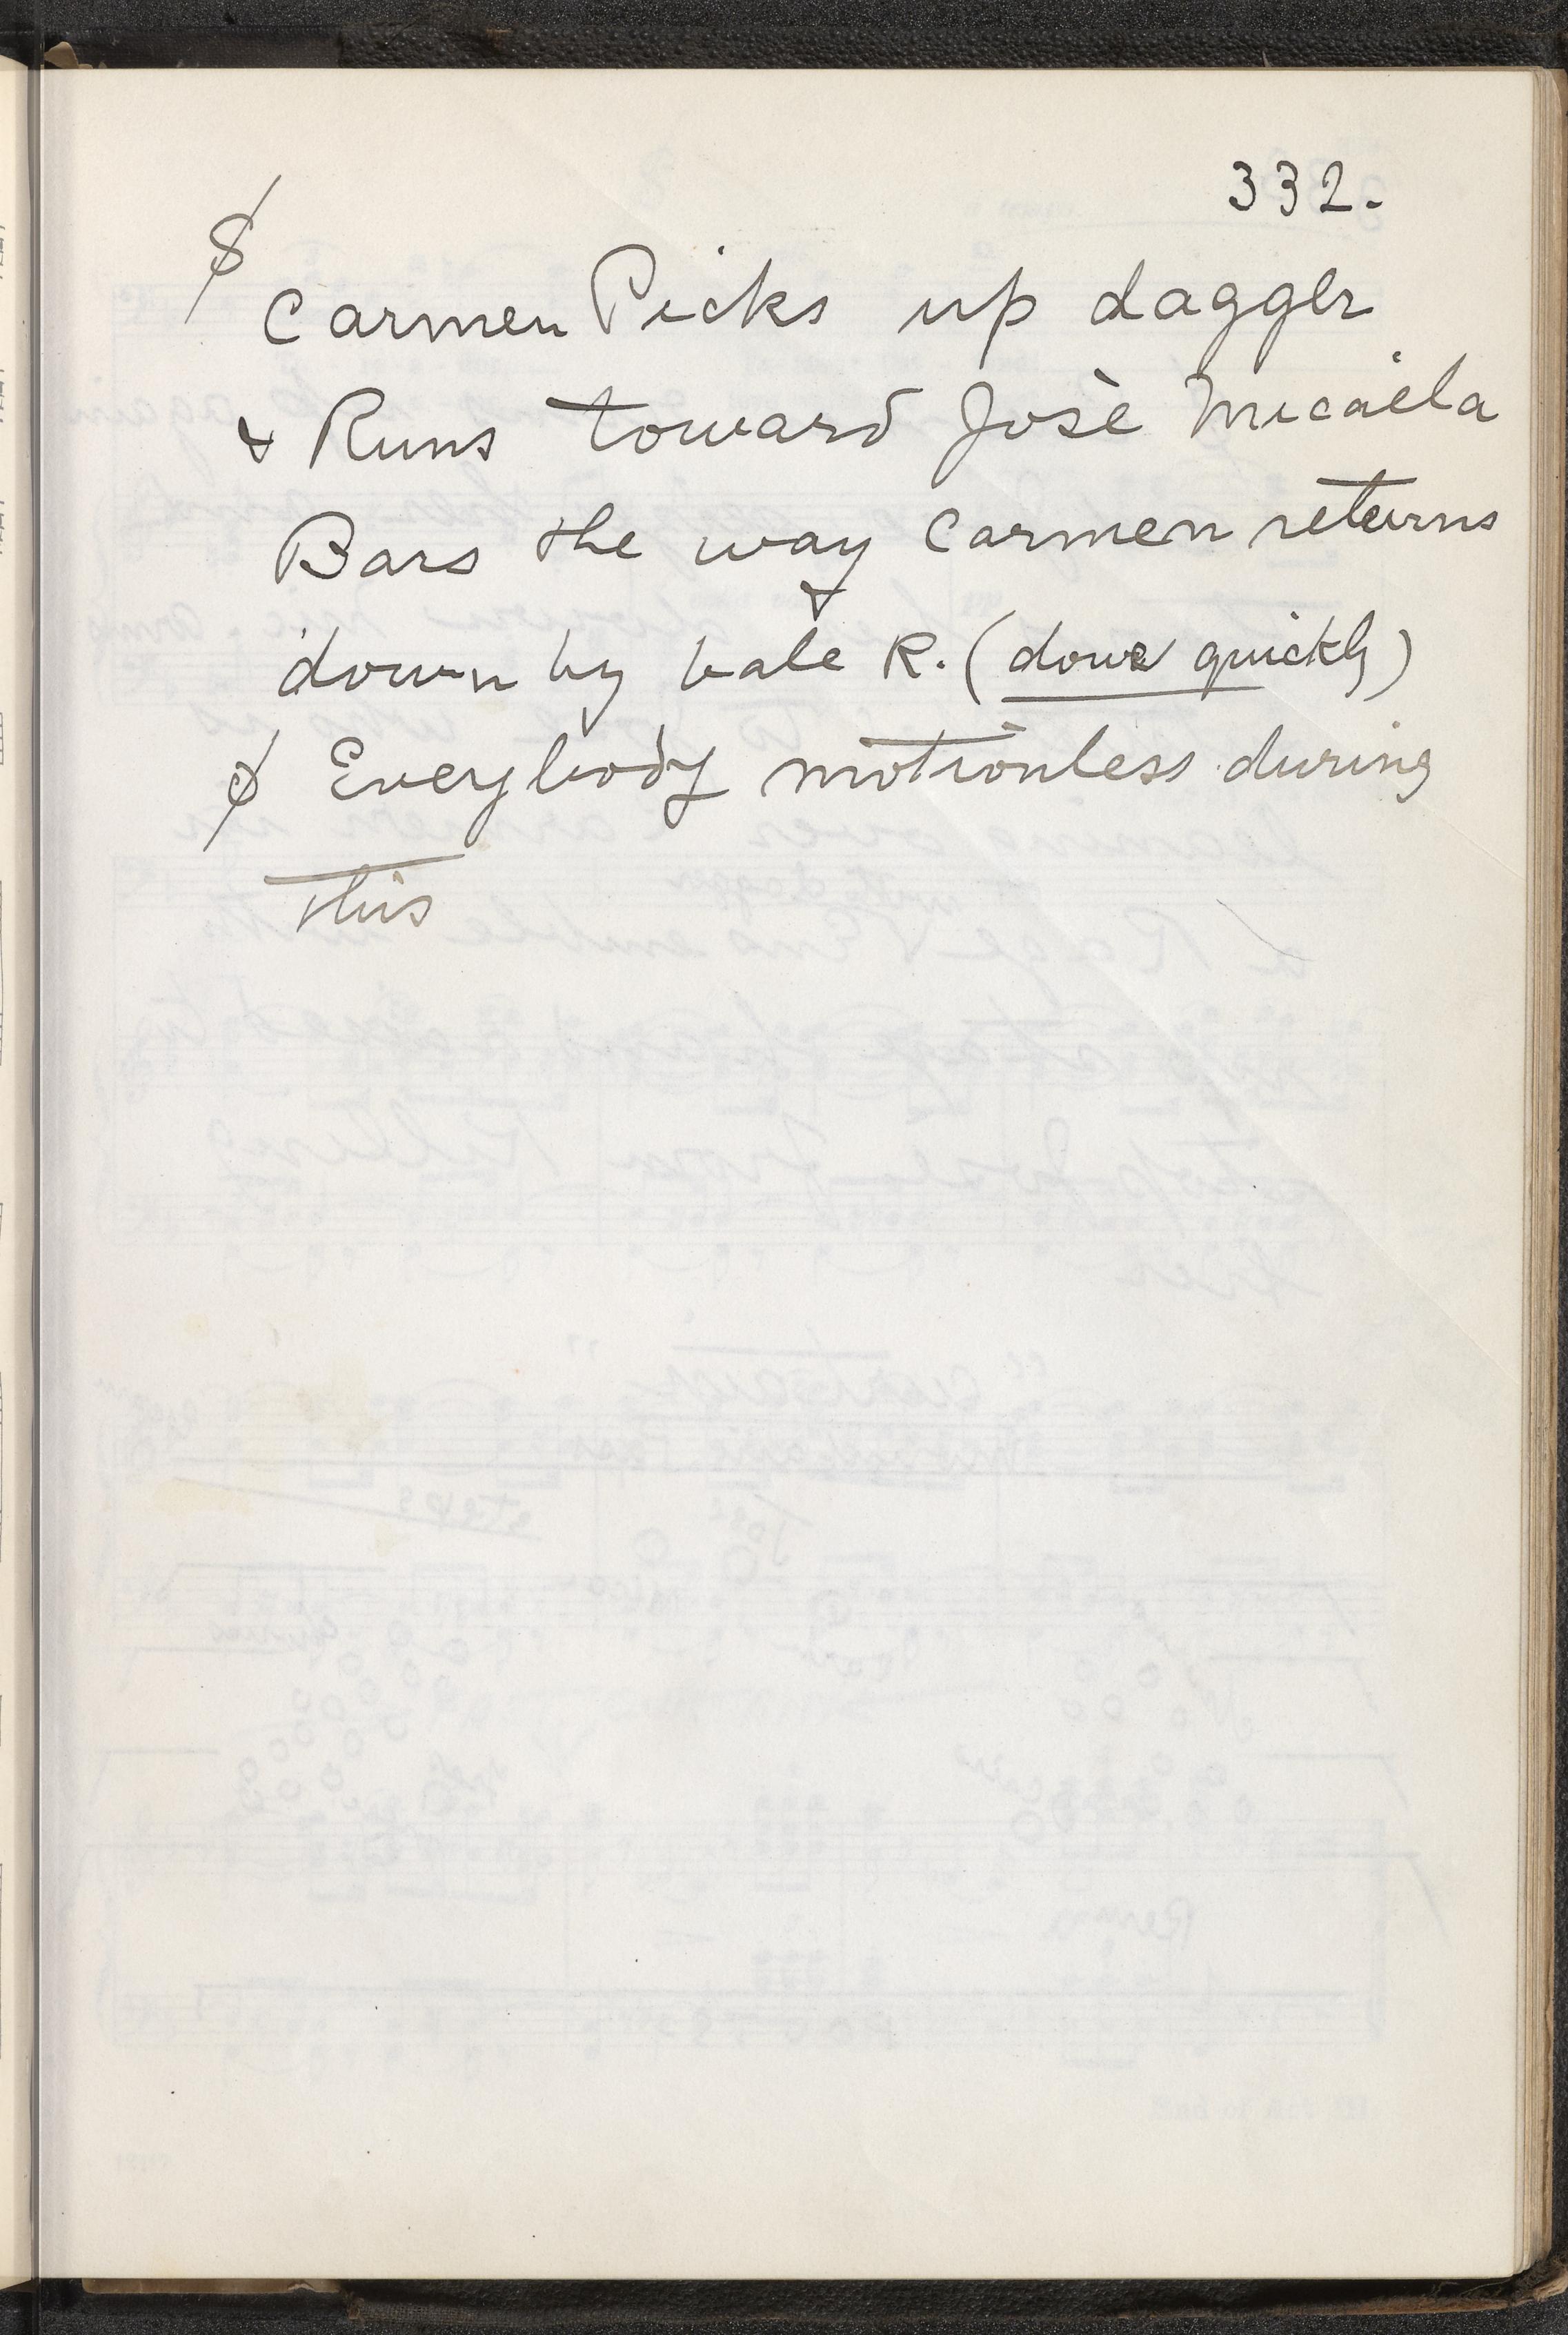 332.
$
Carmen Picks up dagger
& Runs toward Josè Micaëla
Bars the way Carmen returns
&
down by bale R. (done quickly)
ø Everybody motionless during
this